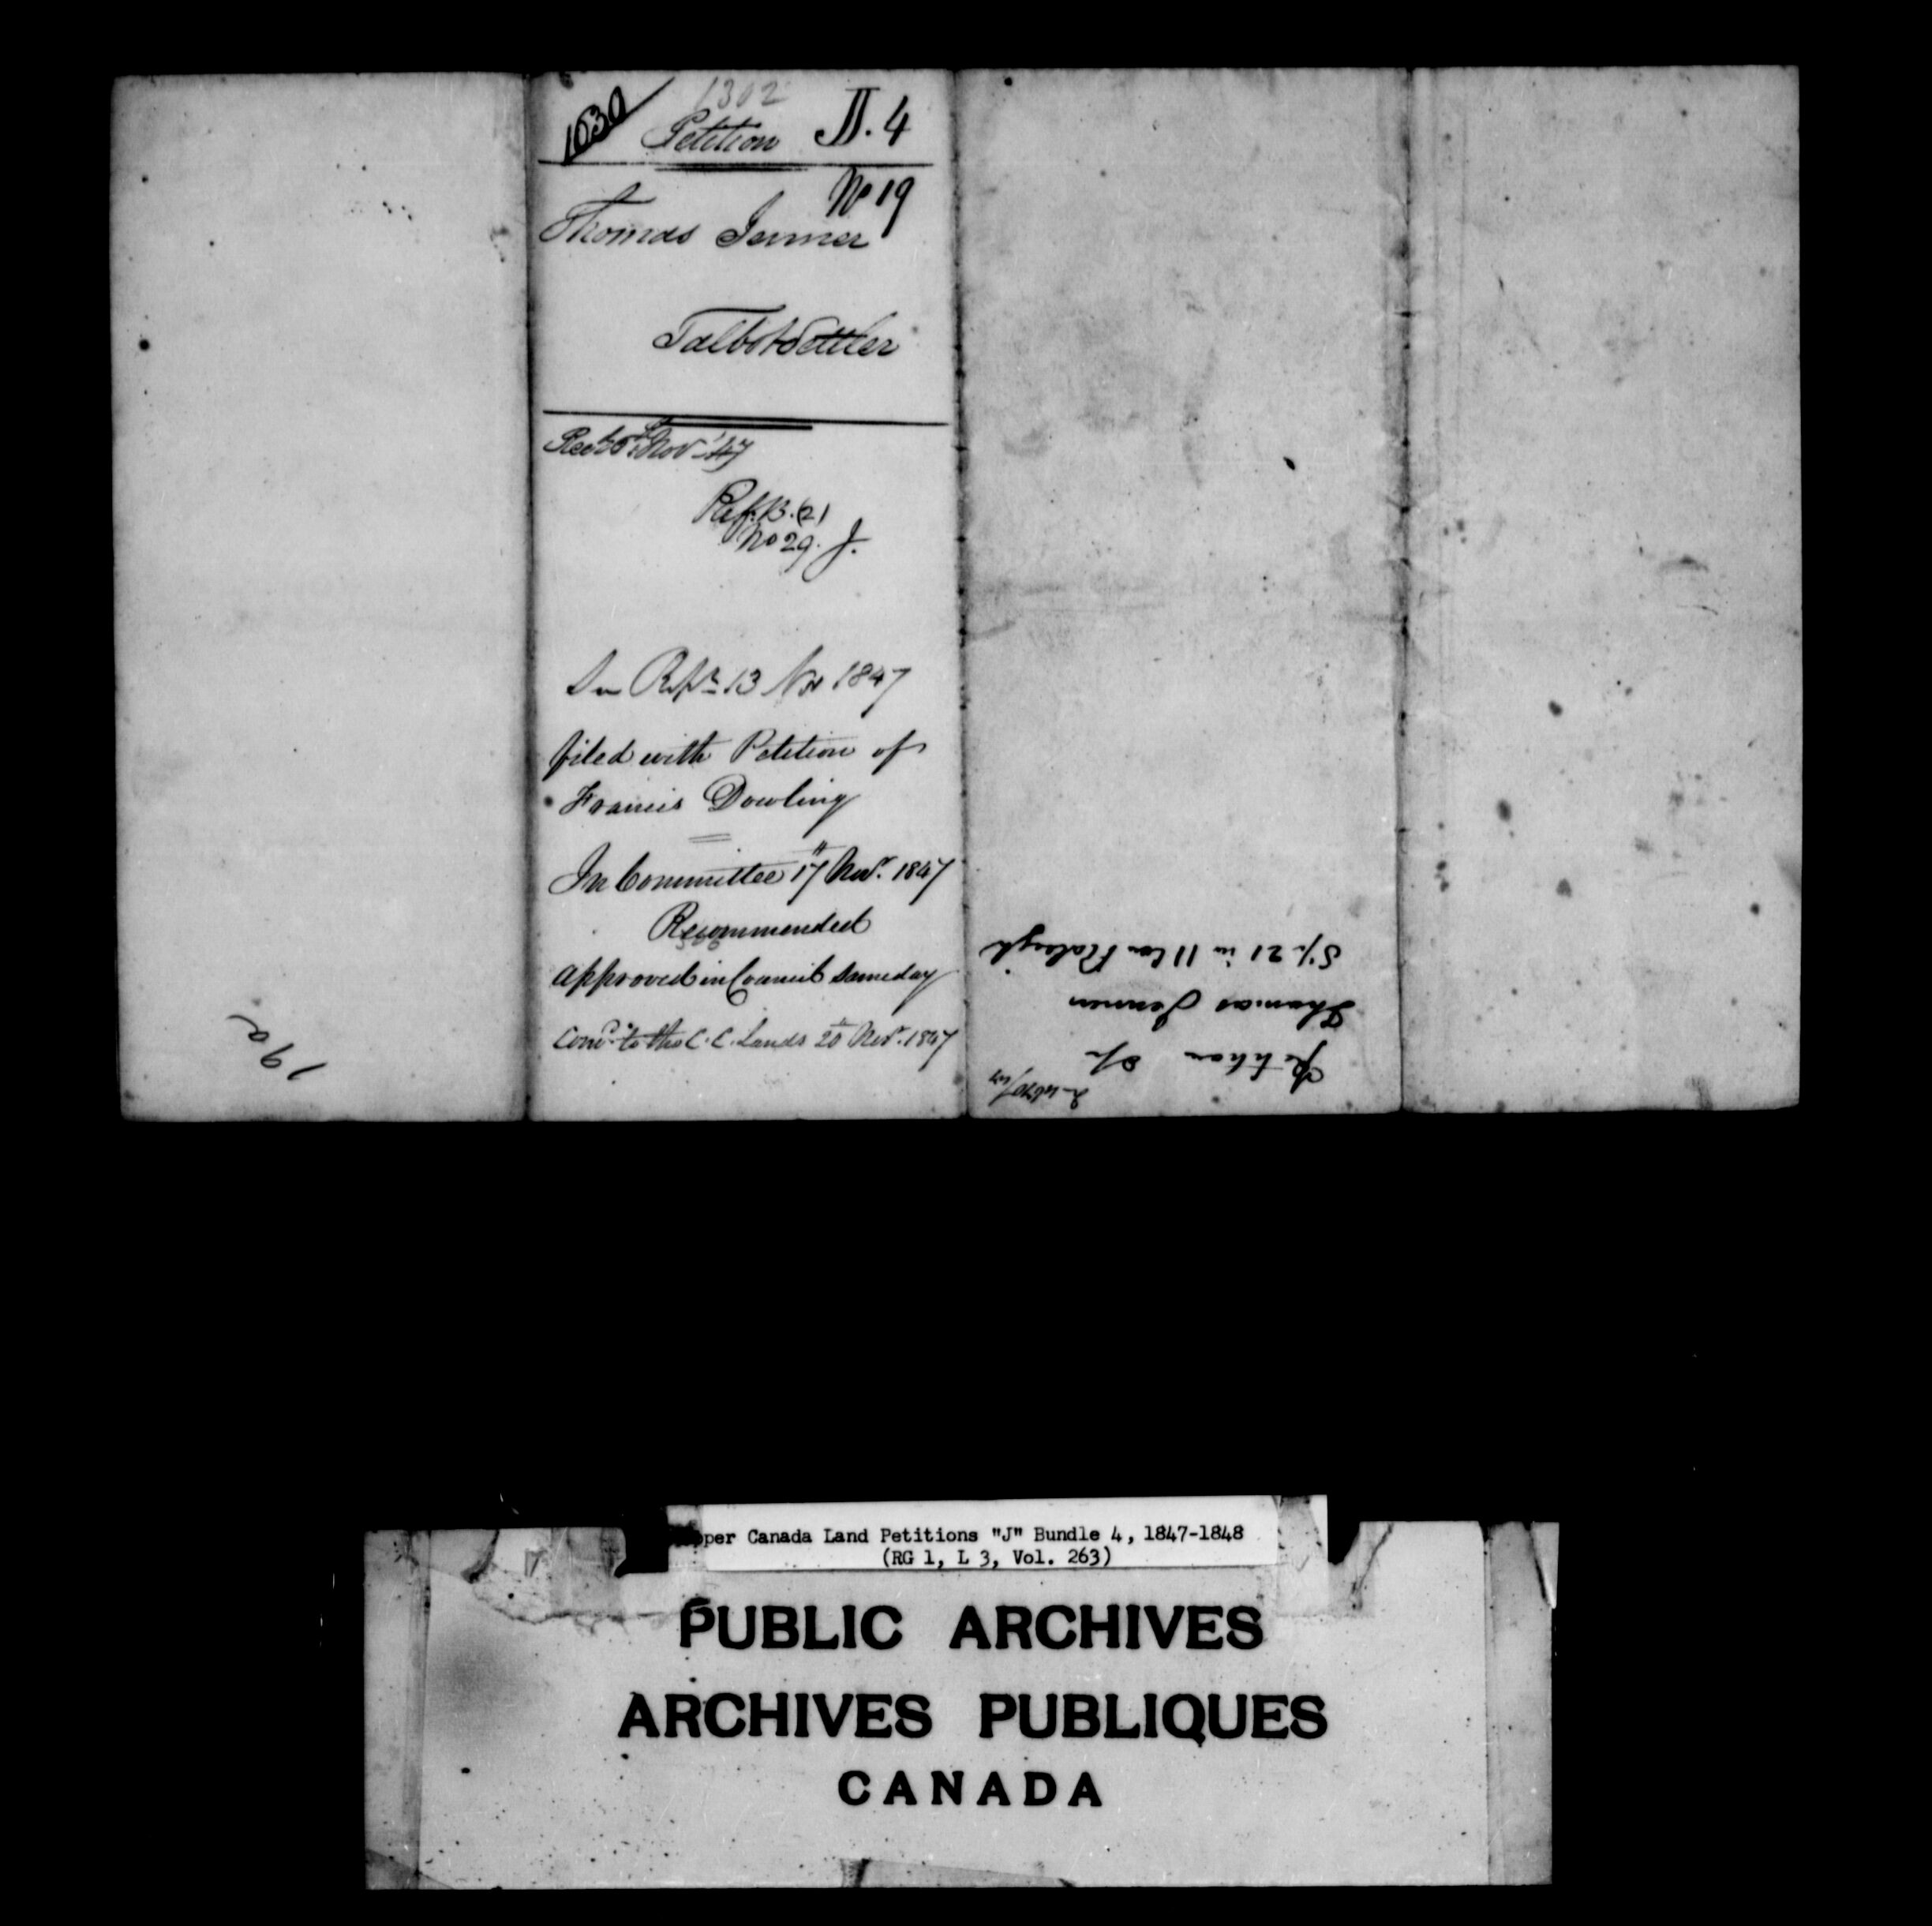 1030
1302
Petition J. 4
No 19
Thomas Jenner
Talbot Settler
Nov 47
Ref. B. 21
No 29. J.
See Repr 13 Nov 1847
filed with Petition of
Francis Dowling
In Committee 17 Novr. 1847
Recommended
approved in Council same day
to the C. C. Lands 20 Novr. 1847
Petition of
Thomas Jenner
S½ 21 in 11 Con Raleigh
19a
pper Canada Land Petitions "J" Bundle 4, 1847-1848
(RG 1, L 3, Vol. 263)
PUBLIC ARCHIVES
ARCHIVES PUBLIQUES
CANADA